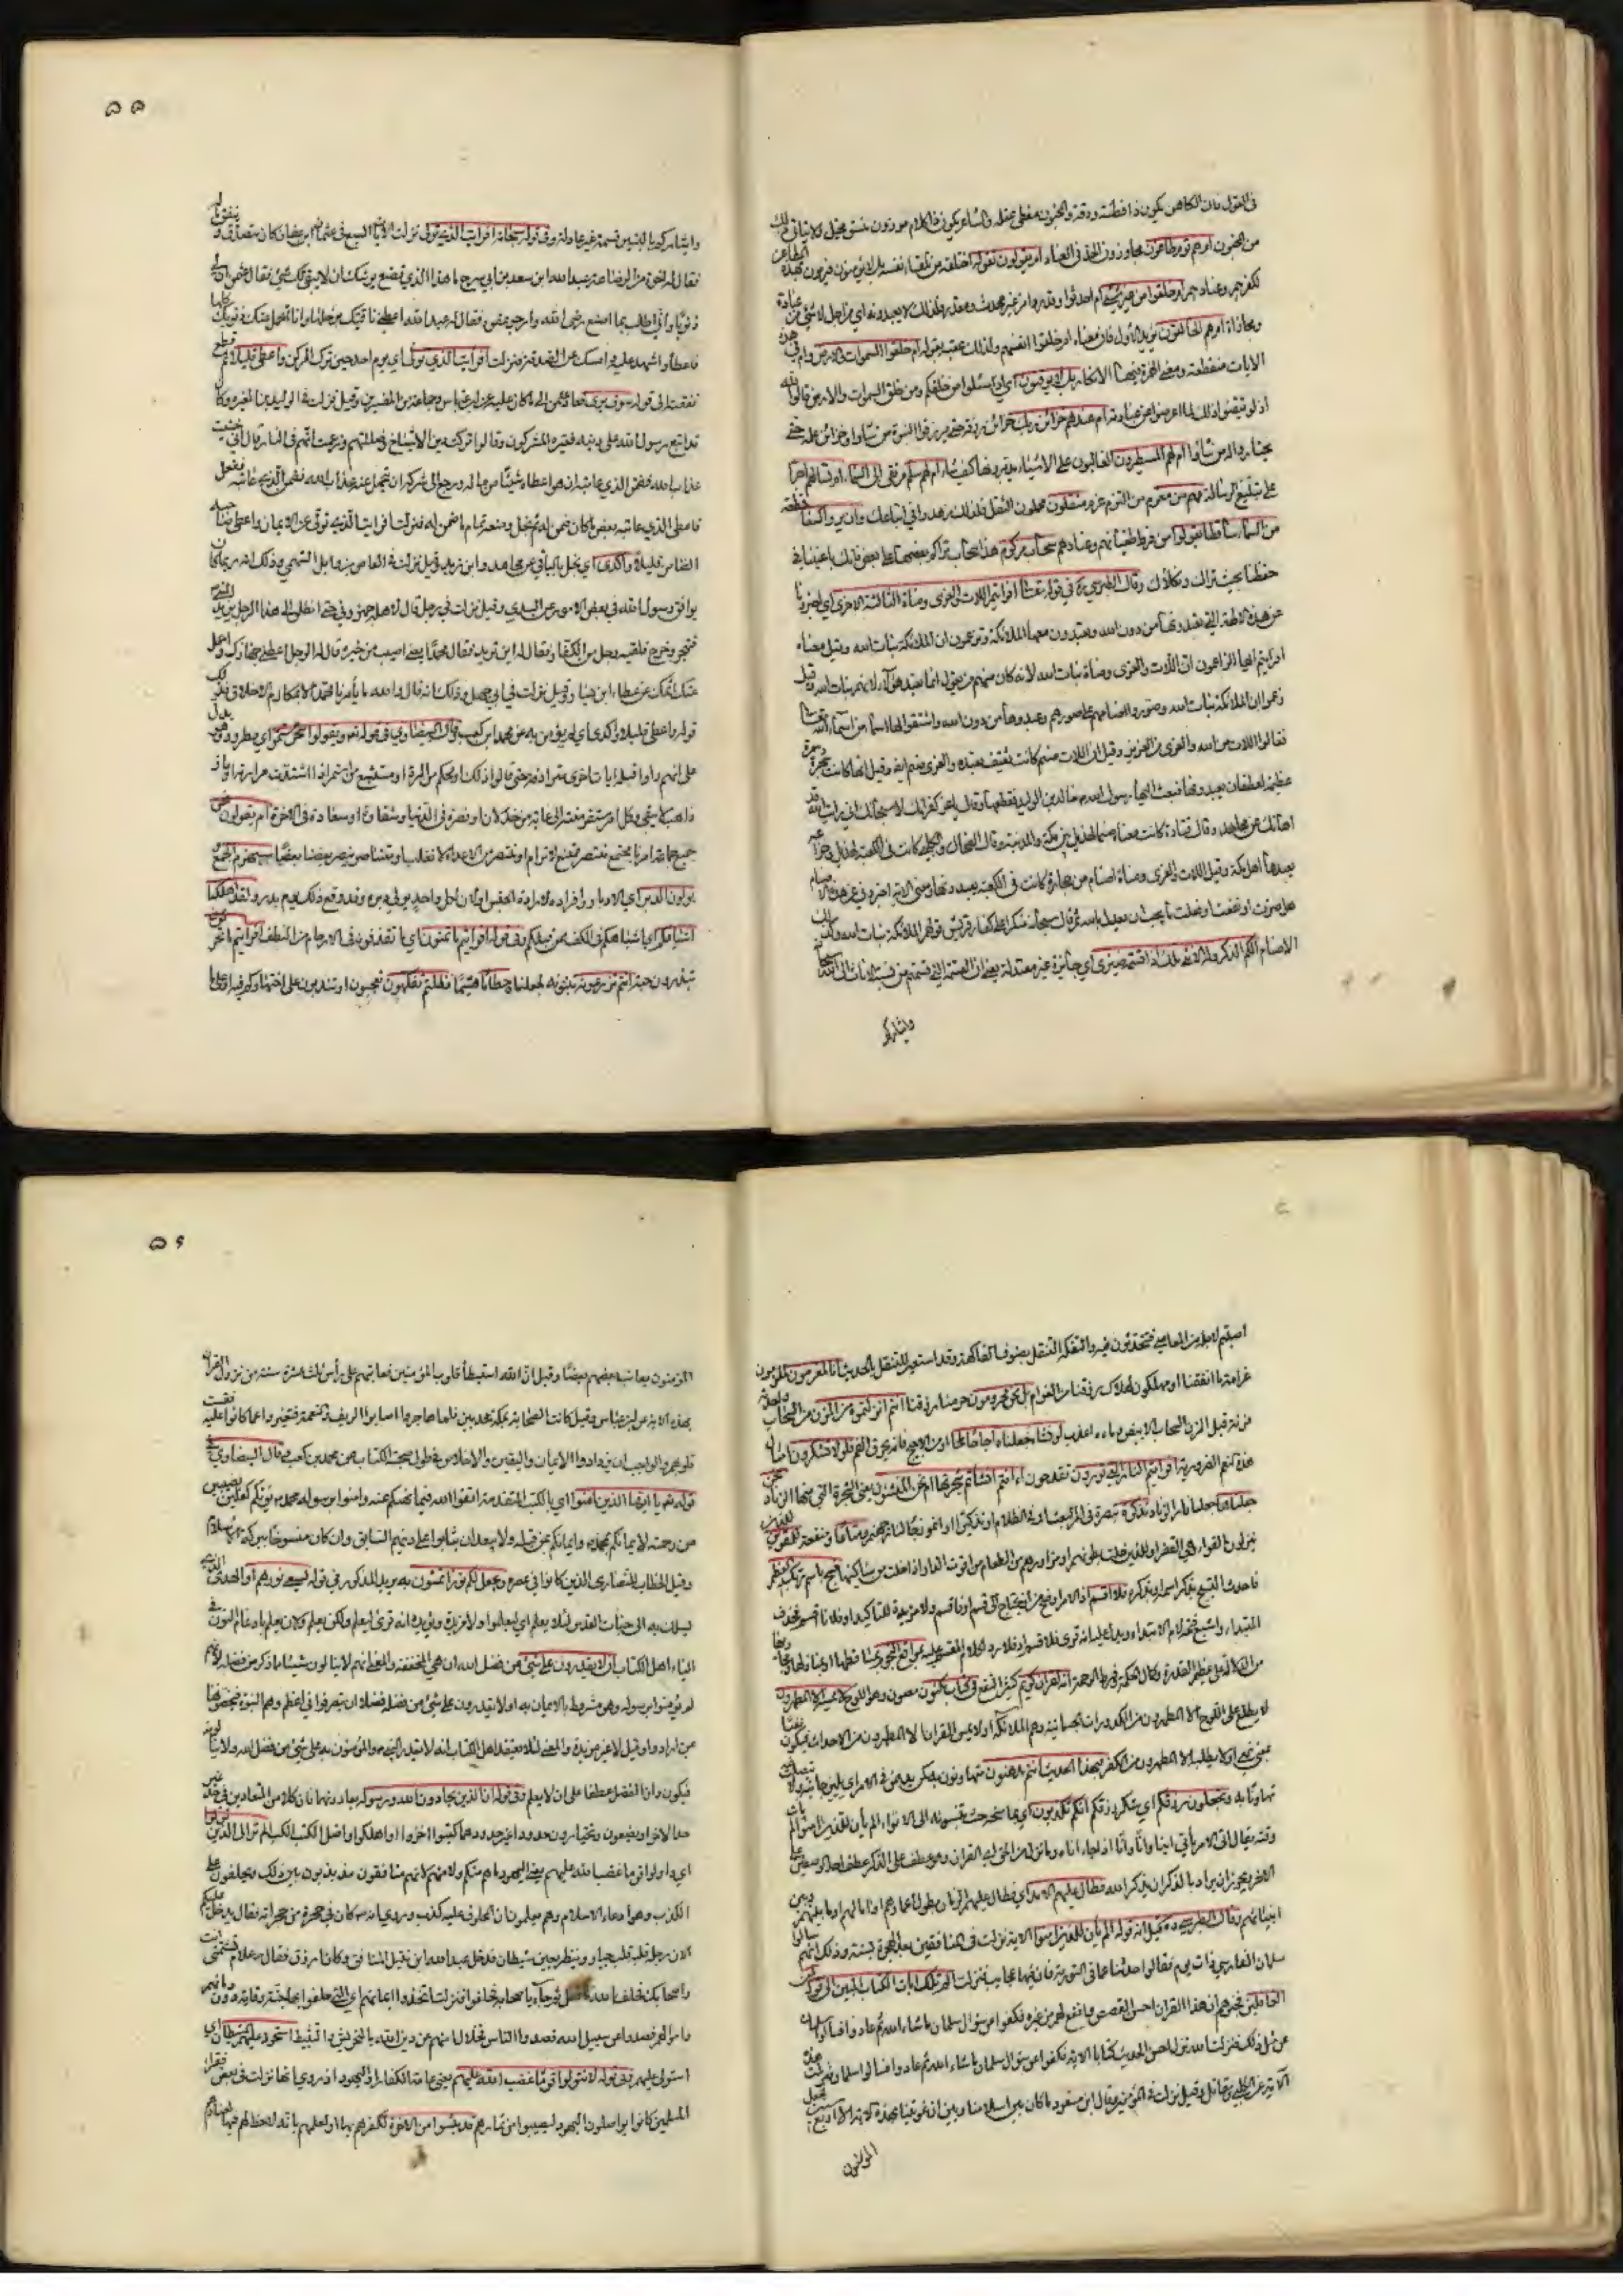 في القول فان الكاهن يكون ذا فطنة ودقة والمجنون مغطى عقله والشاعر يكون ذا كلام موزون متسق مخيل ولا يتاتى ذلك
من المجنون ام هم قوم طاغون مجاوزون الحد في العناد ام يقولون تقوله اختلقه من تلقاء نفسه بل لا يؤمنون فيرمون بهذه المطاعن
لكفرهم وعنادهم ام خلقوا من غير شئ ام احدثوا وقدروا من غير محدث ومقدر فلذلك لا يعبدونه اي من اجل لا شئ من عبادة
ومجازاة ام هم الخالقون يؤيد الاول فان معناه ام خلقوا انفسهم ولذلك عقبه بقوله ام خلقوا السموات والارض وام في هذه
الايات منقطعة ومعنى الهمزة فيها الانكار بل لا يوقنون اي اذا سئلوا من خلقكم ومن خلق السموات والارض قالوا الله
اذ لو ايقنوا ذلك لما اعرضوا عن عبادته ام عندهم خزائن ربك خزائن رزقه حتى يرزقوا النبوة من شاؤا او خزائن علمه حتى
يختاروا لها من شاؤا ام هم المسيطرون الغالبون على الاشياء يدبرونها كيف شاؤا ام لهم سلم مرتقى الى السماء ام تسالهم اجرا
على تبليغ الرسالة فهم من مغرم من التزام غرم مثقلون محملون الثقل فلذلك زهدوا في اتباعك وان يروا كسفا قطعة
من السماء ساقطا يقولوا من فرط طغيانهم وعنادهم سحاب مركوم هذا سحاب تراكم بعضها على بعض فانك باعيننا في
حفظنا بحيث نراك ونكلأك وقال الطبرسي ره في قوله تعالى افرايتم اللات والعزى ومناة الثالثة الاخرى اي اخبرونا
عن هذه الالهة التي تعبدونها من دون الله وتعبدون معها الملائكة وتزعمون ان الملائكة بنات الله وقيل معناه
افرايتم ايها الزاعمون ان اللات والعزى ومناة بنات الله لانه كان منهم من يقول انما نعبد هؤلاء لانهم بنات الله وقيل
زعموا ان الملائكة بنات الله وصوروا اصنامهم على صورهم وعبدوها من دون الله واشتقوا لها اسما من اسماء الله تعالى
فقالوا اللات من الله والعزى من العزيز وقيل ان اللات صنم كانت ثقيف تعبده والعزى صنم ايضا وقيل انها كانت شجرة سمرة
عظيمة لغطفان يعبدونها فبعث اليها رسول الله ص خالد بن الوليد فقطعها وقال يا عز كفرانك لا سبحانك اني رايت الله قد
اهانك عن مجاهد وقال قتادة كانت مناة صنما بقديد بين مكة والمدينة وقال الضحاك والكلبي كانت في الكعبة لهذيل وخزاعة
يعبدها اهل مكة وقيل اللات والعزى ومناة اصنام من حجارة كانت في الكعبة يعبدونها ومعنى الاية اخبروني عن هذه الاصنام
هل ضرت او نفعت او فعلت ما يجب ان تعدل بالله ثم قال سبحانه منكرا على كفار قريش قولهم الملائكة بنات الله وكذلك
الاصنام الكم الذكر وله الانثى تلك اذا قسمة ضيزى اي جائزة غير معتدلة يعني ان القسمة التي قسمتم من نسبة الاناث الى الله سبحانه
وايثاركم
٥٥
وايثاركم بالبنين قسمة غير عادلة وفي قوله سبحانه افرايت الذي تولى نزلت الايات السبع في عثمان بن عفان كان يتصدق وينفق ماله
فقال له اخوه من الرضاعة عبد الله ابن سعد بن ابي سرح ما هذا الذي تصنع يوشك ان لا يبقى لك شئ فقال عثمان ان لي
ذنوبا واني اطلب بما اصنع رضى الله وارجو عفوه فقال له عبد الله اعطني ناقتك برحلها وانا اتحمل عنك ذنوبك كلها
فاعطاه واشهد عليه وامسك عن الصدقة فنزلت افرايت الذي تولى اي يوم احد حين ترك المركز واعطى قليلا ثم قطع
نفقته الى قوله سوف يرى فعاد عثمان الى ما كان عليه عن ابن عباس وجماعة من المفسرين وقيل نزلت في الوليد بن المغيرة وكان
قد اتبع رسول الله على دينه فعيره المشركون وقالوا تركت دين الاشياخ وضللتهم وزعمت انهم في النار قال اني خشيت
عذاب الله فضمن الذي عاتبه ان هو اعطاه شيئا من ماله ورجع الى شركه ان يتحمل عنه عذاب الله ففعل
فاعطى الذي عاتبه بعض ما كان ضمن له ثم بخل ومنعه تمام ما ضمن له فنزلت افرايت الذي تولى عن الايمان واعطى صاحبه
الضامن قليلا واكدى اي بخل بالباقي عن مجاهد وابن زيد وقيل نزلت في العاص بن وائل السهمي وذلك انه ربما كان
يوافق رسول الله في بعض الامور عن السدي وقيل نزلت في رجل قال لاهله جهزوني حتى انطلق الى هذا الرجل يريد النبي ص
فتجهز وخرج فلقيه رجل من الكفار وقال له اين تريد فقال محمدا لعلي اصيب من خيره قال له الرجل اعطني جهازك واحمل
عنك اثمك عن عطاء ابن يسار وقيل نزلت في ابي جهل وذلك انه قال والله ما يأمرنا محمد الا بمكارم الاخلاق فذلك
قوله واعطى قليلا واكدى اي لم يؤمن به عن محمد ابن كعب وقال البيضاوي في قوله تعالى ويقولوا سحر مستمر اي مطرد وهو يدل
على انهم راوا قبله ايات اخرى مترادفة حتى قالوا ذلك او محكم من المرة او مستبشع من استمر اذا اشتدت مرارته او مار
ذاهب لا يبقى وكل امر مستقر منته الى غاية من خذلان او نصر في الدنيا وشقاوة او سعادة في الاخرة ام يقولون نحن
جميع جماعة امرنا مجتمع منتصر ممتنع لا نرام او منتصر من الاعداء لا نغلب او متناصر ينصر بعضنا بعضا سيهزم الجمع
ويولون الدبر اي الادبار وافراده لارادة الجنس او لان كل واحد يولي دبره وقد وقع ذلك يوم بدر ولقد اهلكنا
اشياعكم اي اشباهكم في الكفر ممن قبلكم وفي قوله افرايتم ما تمنون اي ما تقذفونه في الارحام من النطف افرايتم ما تحرثون
تبذرون حبه ءانتم تزرعونه تنبتونه لجعلناه حطاما هشيما فظلتم تفكهون تعجبون او تندمون على اجتهادكم فيه او على ما
اصبتم لاجله من المعاصي فتحدثون فيه والتفكه التنقل بصنوف الفاكهة وقد استعير للتنقل بالحديث انا لمغرمون لملزمون
غرامة ما انفقنا او مهلكون لهلاك رزقنا من الغرام بل نحن محرومون حرمنا رزقنا ءانتم انزلتموه من المزن من السحاب واحدته
مزنة وقيل المزن السحاب الابيض وماءه اعذب لو نشاء جعلناه اجاجا ملحا او من الاجيج فانه يحرق الفم فلولا تشكرون امثال
هذه النعم الضرورية افرايتم النار التي تورون تقدحون ءانتم انشاتم شجرتها ام نحن المنشئون يعني الشجرة التي منها الزناد نحن
جعلناها جعلنا نار الزناد تذكرة تبصرة في امر البعث او في الظلام او تذكيرا او انموذجا لنار جهنم ومتاعا ومنفعة للمقوين للذين
ينزلون القواء وهي القفر او للذين خلت بطونهم او مزاودهم من الطعام من اقوت الدار اذا خلت من ساكنيها فسبح باسم ربك العظيم
فاحدث التسبيح بذكر اسمه او بذكره فلا اقسم اذ الامر اوضح من ان يحتاج الى قسم او فاقسم ولا مزيدة للتاكيد او فلانا اقسم فحذف
المبتدا واشبع فتحة لام الابتداء ويدل عليه انه قرئ فلاقسم او فلا رد لكلام المقسم عليه بمواقع النجوم
من الدلالة على عظيم القدرة وكمال الحكمة وفرط الرحمة انه لقران كريم كثير النفع في كتاب مكنون مصون وهو اللوح لا يمسه الا المطهرون
لا يطلع على اللوح الا المطهرون من الكدورات الجسمانية وهم الملائكة او لا يمس القران الا المطهرون من الاحداث فيكون نفيا
بمعنى نهي او لا يطلبه الا المطهرون من الكفر افبهذا الحديث انتم مدهنون متهاونون به كمن يدهن في الامر اي يلين جانبه ولا يتصلب
تهاونا به وتجعلون رزقكم اي شكر رزقكم انكم تكذبون اي بمانحه حيث تنسبونه الى الانواء الم يأن للذين امنوا الم يات
وقته يقال انى الامر يأني انيا وانا وانا اذا جاء اناه وما نزل من الحق اي القران وهو عطف على الذكر عطف احد الوصفين على
الاخر ويجوز ان يراد بالذكر ان يذكر الله فطال عليهم الامد اي فطال عليهم الزمان بطول اعمارهم او امالهم او ما بينهم وبين
انبيائهم وقال الطبرسي ره قيل ان قوله الم يأن للذين امنوا الاية نزلت في المنافقين بعد الهجرة بسنة وذلك انهم سالوا
سلمان الفارسي ذات يوم فقالوا حدثنا عما في التورية فان فيها عجايب فنزلت الر تلك ايات الكتاب المبين الى قوله لمن
الغافلين فخبرهم ان هذا القران احسن القصص وانفع لهم من غيره فكفوا عن سؤال سلمان ما شاء الله ثم عادوا فسالوا سلمان
عن مثل ذلك فنزلت الله نزل احسن الحديث كتابا الاية فكفوا عن سؤال سلمان ما شاء الله ثم عادوا فسالوا سلمان فنزلت هذه
الاية عن الكلبي ومقاتل وقيل نزلت في المؤمنين وقال ابن مسعود ما كان بين اسلامنا وبين ان عوتبنا بهذه الاية الا اربع سنين فجعل
المؤمنون
٥٦
المؤمنون يعاتب بعضهم بعضا وقيل ان الله استبطأ قلوب المؤمنين فعاتبهم على رأس ثلث عشرة سنة من نزول القران
بهذه الاية عن ابن عباس وقيل كانت الصحابة بمكة مجدبين فلما هاجروا اصابوا الريف والنعمة فتغيروا عما كانوا عليه فقست
قلوبهم والواجب ان يزدادوا الايمان واليقين والاخلاص في طول صحبة الكتاب عن محمد بن كعب وقال البيضاوي في
قوله تعالى يا ايها الذين امنوا اي بالكتب المتقدمة اتقوا الله فيما نهيكم عنه وامنوا برسوله محمد ص يؤتكم كفلين نصيبين
من رحمته لايمانكم بمحمد وايمانكم بمن قبله ولا يبعد ان يثابوا على دينهم السابق وان كان منسوخا ببركة الاسلام
وقيل الخطاب للنصارى الذين كانوا في عصره ويجعل لكم نورا تمشون به يريد المذكور في قوله يسعى نورهم او الهدى الذي
يسلك به الى جناب القدس لئلا يعلم اي ليعلموا ولا مزيدة ويؤيده انه قرئ ليعلم ولكي يعلم ولان يعلم بادغام النون في
الياء اهل الكتاب الا يقدرون على شئ من فضل الله ان هي المخففة والمعنى انهم لا ينالون شيئا مما ذكر من فضله لانهم
لم يؤمنوا برسوله وهو مشروط بالايمان به او لا يقدرون على شئ من فضله فضلا ان يتصرفوا في اعظمه وهم النبوة فيخصونها
بمن ارادوا وقيل لا غير مزيدة والمعنى لئلا يعتقد اهل الكتاب انه لا يقدر النبي ص والمؤمنون به على شئ من فضل الله ولا ينالونه
فيكون وان الفضل عطفا على ان لا يعلم وفي قوله ان الذين يحادون الله ورسوله يعادونهما فان كلا من المتعادين في حد غير
حد الاخر او يضعون او يختارون حدودا غير حدودهما كبتوا اخزوا او اهلكوا واصل الكبت الكب الم تر الى الذين تولوا
اي والوا قوما غضب الله عليهم يعني اليهود ما هم منكم ولا منهم لانهم منافقون مذبذبون بين ذلك ويحلفون على
الكذب وهو ادعاء الاسلام وهم يعلمون ان المحلوف عليه كذب وروي انه ص كان في حجرة من حجراته فقال يدخل عليكم
الان رجل قلبه قلب جبار وينظر بعين شيطان فدخل عبد الله ابن نبتل المنافق وكان ازرق فقال ص علام تشتمني انت
واصحابك فحلف بالله ما فعل ثم جاء باصحابه فحلفوا فنزلت اتخذوا ايمانهم اي التي حلفوا بها جنة وقاية دون دمائهم
واموالهم فصدوا عن سبيل الله فصدوا الناس في خلال امنهم عن دين الله بالتحريش والتثبيط استحوذ عليهم الشيطان اي
استولى عليهم وفي قوله لا تتولوا قوما غضب الله عليهم يعني عامة الكفار او اليهود اذ روي انها نزلت في بعض فقراء
المسلمين كانوا يواصلون اليهود ليصيبوا من ثمارهم قد يئسوا من الاخرة لكفرهم بها او لعلمهم بانه لا حظ لهم فيها لعنادهم